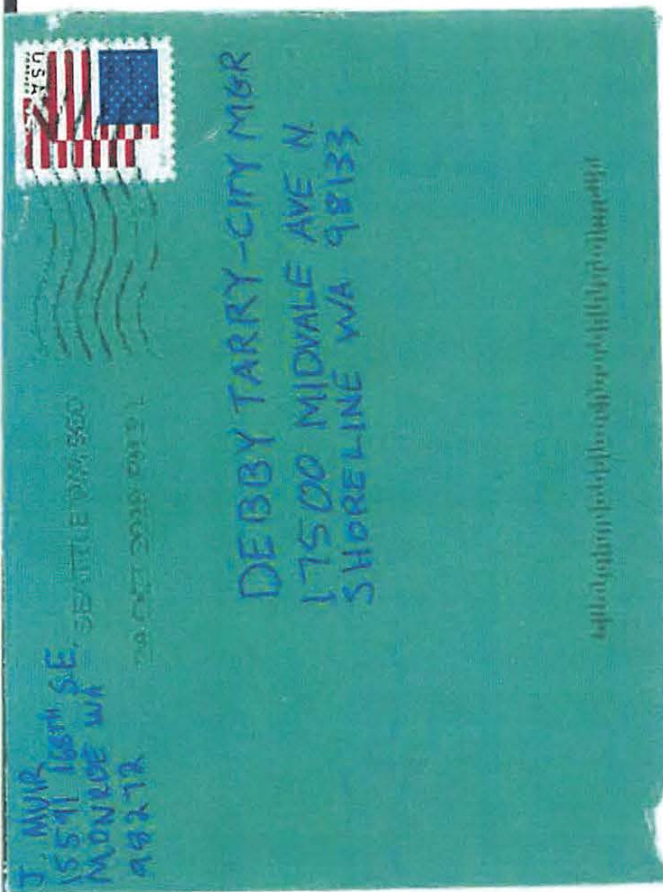 J. MUIR
15591 168TH S.E.
MONROE WA
98272
SEATTLE WA 980
OCT 2020 PM
USA
DEBBY TARRY-CITY MGR
17500 MIDVALE AVE N.
SHORELINE WA 98133